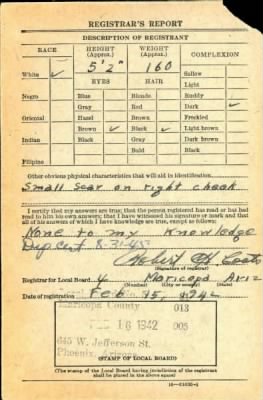 REGISTRAR'S REPORT
DESCRIPTION OF REGISTRANT
RACE HEIGHT (Approx.) WEIGHT (Approx.) COMPLEXION
5' 2" 160
White ✓ EYES HAIR Sallow
Light
Negro Blue Blonde Ruddy
Gray Red Dark ✓
Oriental Hazel Brown Freckled
Brown ✓ Black ✓ Light brown
Indian Black Gray Dark brown
Bald Black
Filipino
Other obvious physical characteristics that will aid in identification
Small Scar on right cheek
I certify that my answers are true; that the person registered has read or has had read to him his own answers; that I have witnessed his signature or mark and that all of his answers of which I have knowledge are true, except as follows:
None to my Knowledge
Dup Cert 8-31-45
(Signature of registrar)
Registrar for Local Board 4 Maricopa Ariz
(Number) (City or county) (State)
Date of registration Feb 15, 1942
Maricopa County 013
16 1942 005
645 W. Jefferson St.
Phoenix, Arizona
(STAMP OF LOCAL BOARD)
(The stamp of the Local Board having jurisdiction of the registrant shall be placed in the above space)